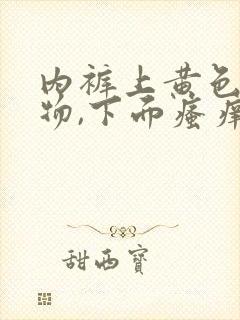 内裤上黄色
物,下面瘙痒
甜西宝